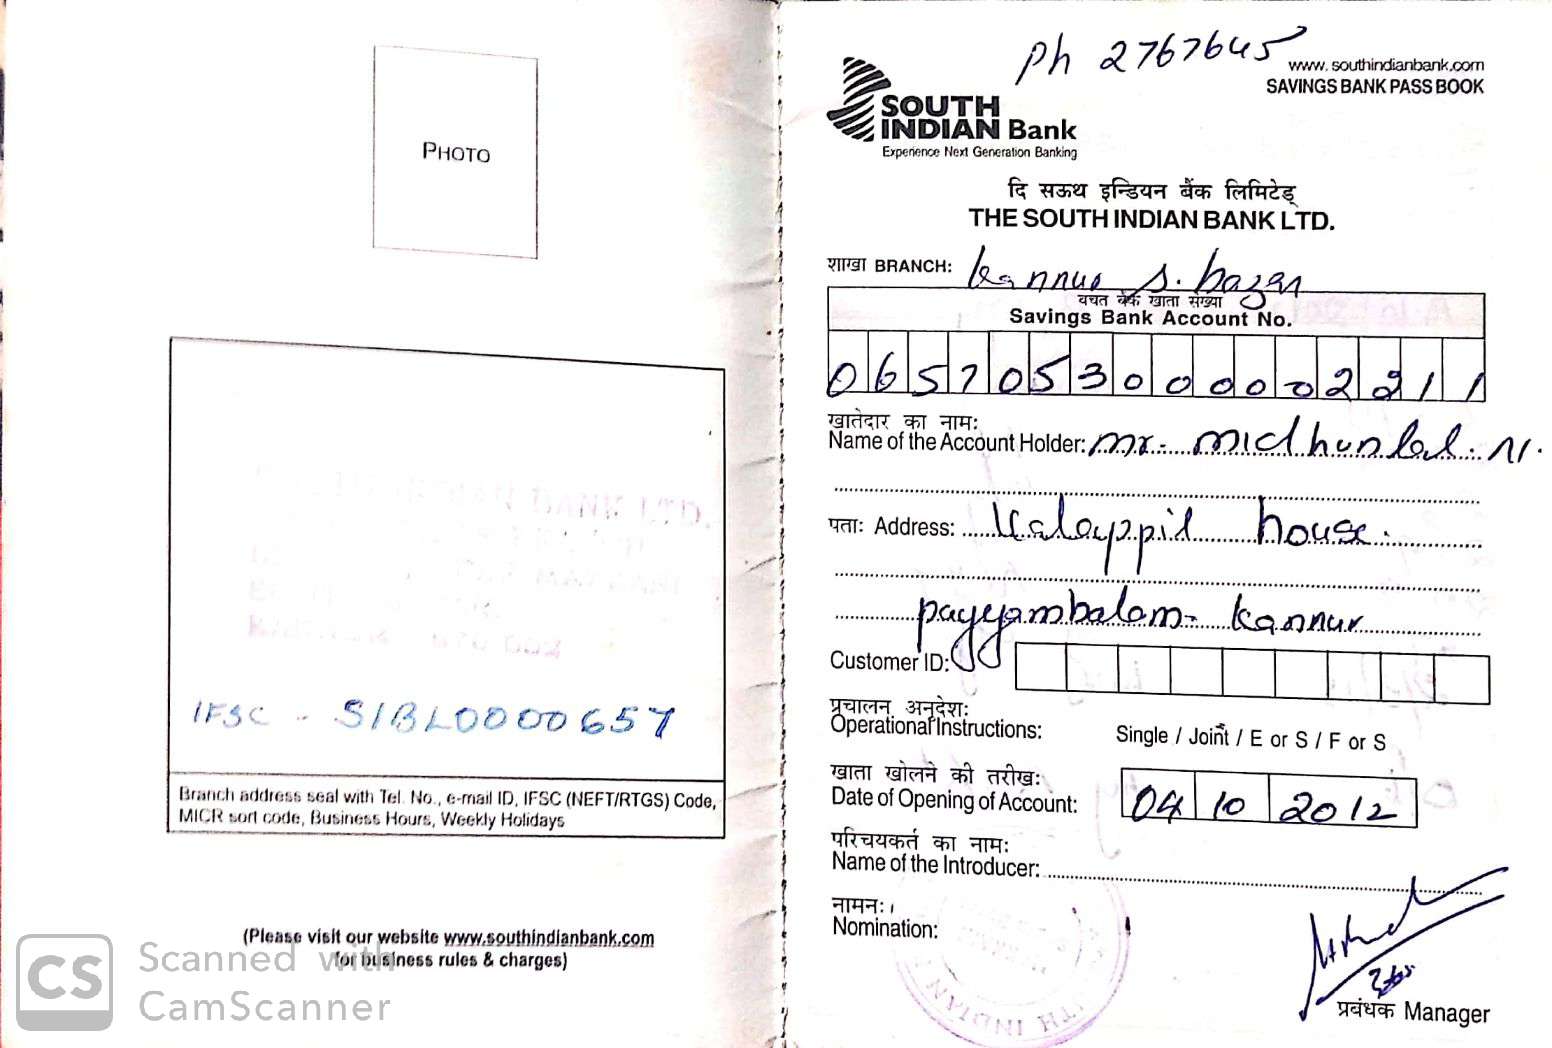 PHOTO
IFSC - SIBL0000657
Branch address seal with Tel. No., e-mail ID, IFSC (NEFT/RTGS) Code,
MICR sort code, Business Hours, Weekly Holidays
(Please visit our website www.southindianbank.com
for business rules & charges)
CS Scanned with
CamScanner
Ph 2767645
www.southindianbank.com
SAVINGS BANK PASS BOOK
SOUTH
INDIAN Bank
Experience Next Generation Banking
दि सऊथ इन्डियन बैंक लिमिटेड्
THE SOUTH INDIAN BANK LTD.
शाखा BRANCH: Kannur S. bazar
बचत बैंक खाता संख्या
Savings Bank Account No.
0657053000002211
खातेदार का नाम:
Name of the Account Holder: Mr. Midhunlal. N.
पता: Address: Kalayppil house.
payyambalam - Kannur
Customer ID:
प्रचालन अनुदेश:
Operational Instructions: Single / Joint / E or S / F or S
खाता खोलने की तारीख:
Date of Opening of Account: 04 10 2012
परिचयकर्त का नाम:
Name of the Introducer:
नामन:
Nomination:
प्रबंधक Manager